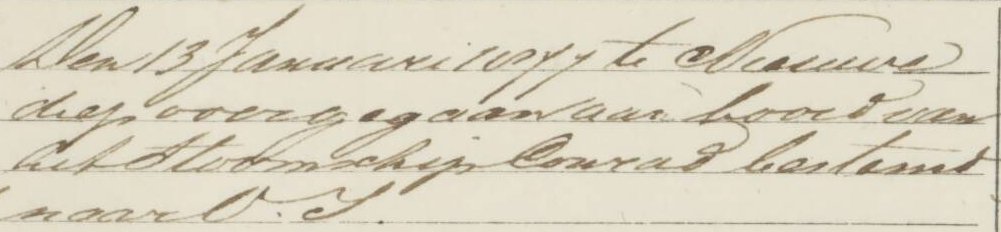 Den 13 Januari 1877 te Nieuwe
diep overgegaan aan boord van
het Stoomschip Conrad bestemd
naar O. I.